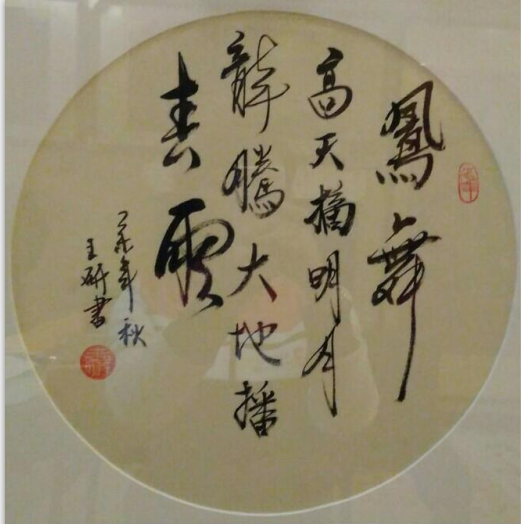 鳳舞
高天摘明月
龍騰大地播
春雲
年秋
王研書